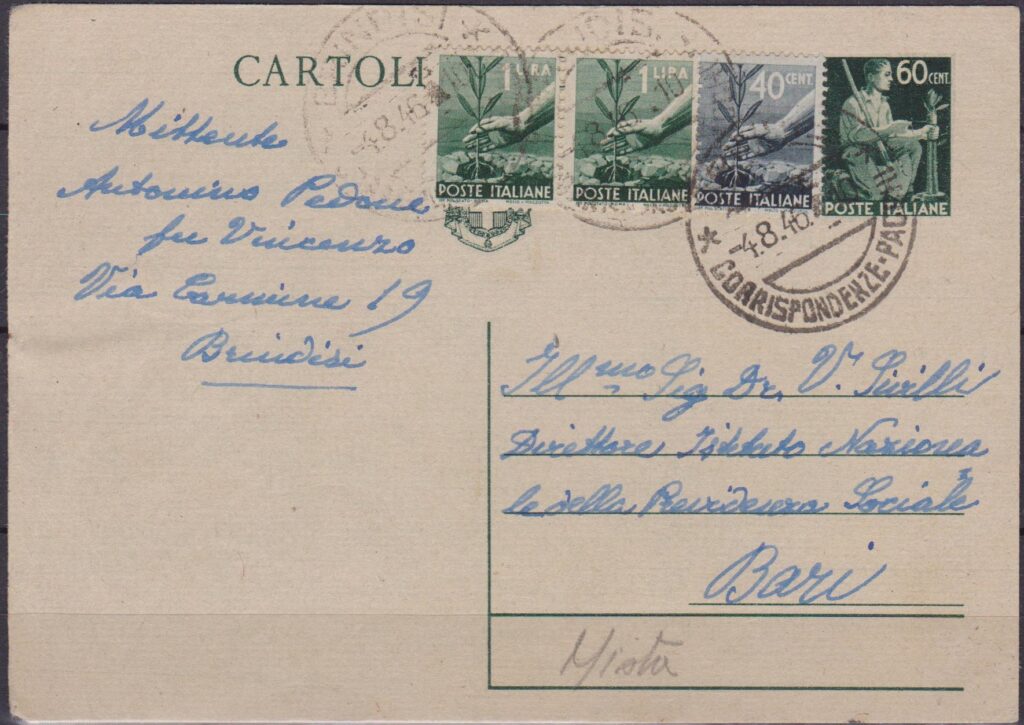 CARTOLI
BRINDISI *
-4.8.46
1 LIRA
POSTE ITALIANE
1 LIRA
POSTE ITALIANE
40 CENT.
POSTE ITALIANE
60 CENT.
POSTE ITALIANE
-4.8.46.10
* CORRISPONDENZE-PAC
Mittente
Antonino Pedone
fu Vincenzo
Via Carmine 19
Brindisi
Ill mo Sig Dr. V. Sivilli
Direttore Istituto Naziona
le della Previdenza Sociale
Bari
Mista